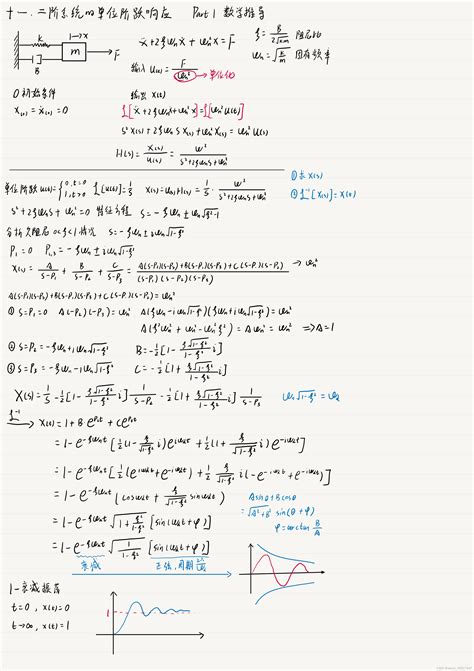 十一.二阶系统的单位阶跃响应 Part 1 数学推导
k m F B x
ẍ+2ζωnẋ+ωn²x=F
ζ=B/(2√km) 阻尼比
ωn=√(k/m) 固有频率
输入 u(t)=F/ωn² → 单位化
0初始条件 输出 x(t)
x(0)=ẋ(0)=0 ℒ[ẍ+2ζωnẋ+ωn²x]=ℒ[ωn²u(t)]
s²X(s)+2ζωn s X(s)+ωn²X(s)=ωn²U(s)
H(s)=X(s)/U(s)=ω²/(s²+2ζωns+ωn²)
① 求 X(s)
单位阶跃 u(t)={0,t=0 1,t>0 ℒ[u(t)]=1/s X(s)=U(s)H(s)=1/s·ω²/(s²+2ζωns+ωn²)
② ℒ⁻¹[X(s)]=x(t)
s²+2ζωns+ωn²=0 特征方程 s=-ζωn±ωn√(ζ²-1)
分析欠阻尼 0<ζ<1 情况 s=-ζωn±iωn√(1-ζ²)
P₁=0 P₂,₃=-ζωn±iωn√(1-ζ²)
X(s)=A/(s-P₁)+B/(s-P₂)+C/(s-P₃)=(A(s-P₂)(s-P₃)+B(s-P₁)(s-P₃)+C(s-P₁)(s-P₂))/((s-P₁)(s-P₂)(s-P₃)) → ωn²
A(s-P₂)(s-P₃)+B(s-P₁)(s-P₃)+C(s-P₁)(s-P₂)=ωn²
① s=P₁=0 A(-P₂)(-P₃)=ωn² A(ζωn-iωn√(1-ζ²))(ζωn+iωn√(1-ζ²))=ωn²
A(ζ²ωn²+ωn²-ωn²ζ²)=Aωn²=ωn² ⇒A=1
② s=P₂=-ζωn+iωn√(1-ζ²) B=-1/2[1-ζ√(1-ζ²)/(1-ζ²) i]
③ s=P₃=-ζωn-iωn√(1-ζ²) C=-1/2[1+ζ√(1-ζ²)/(1-ζ²) i]
X(s)=1/s-1/2[1-ζ√(1-ζ²)/(1-ζ²) i]1/(s-P₂)-1/2[1+ζ√(1-ζ²)/(1-ζ²) i]1/(s-P₃) ωn√(1-ζ²)=ωd
ℒ⁻¹→ x(t)=1+B·e^(P₂t)+Ce^(P₃t)
=1-e^(-ζωnt)[1/2(1-ζ/√(1-ζ²) i)e^(iωdt)+1/2(1+ζ/√(1-ζ²) i)e^(-iωdt)]
=1-e^(-ζωnt)[1/2(e^(iωdt)+e^(-iωdt))+1/2 ζ/√(1-ζ²) i(-e^(iωdt)+e^(-iωdt))]
=1-e^(-ζωnt)(cosωdt+ζ/√(1-ζ²) sinωdt)
Asinθ+Bcosθ
=√(A²+B²) sin(θ+φ)
φ=arctan B/A
=1-e^(-ζωnt)√(1+ζ²/(1-ζ²))[sin(ωdt+φ)]
=1-e^(-ζωnt)√(1/(1-ζ²))[sin(ωdt+φ)]
衰减 正弦,周期 2π/ωd
1-衰减振荡
t=0, x(t)=0
t→∞, x(t)=1
1